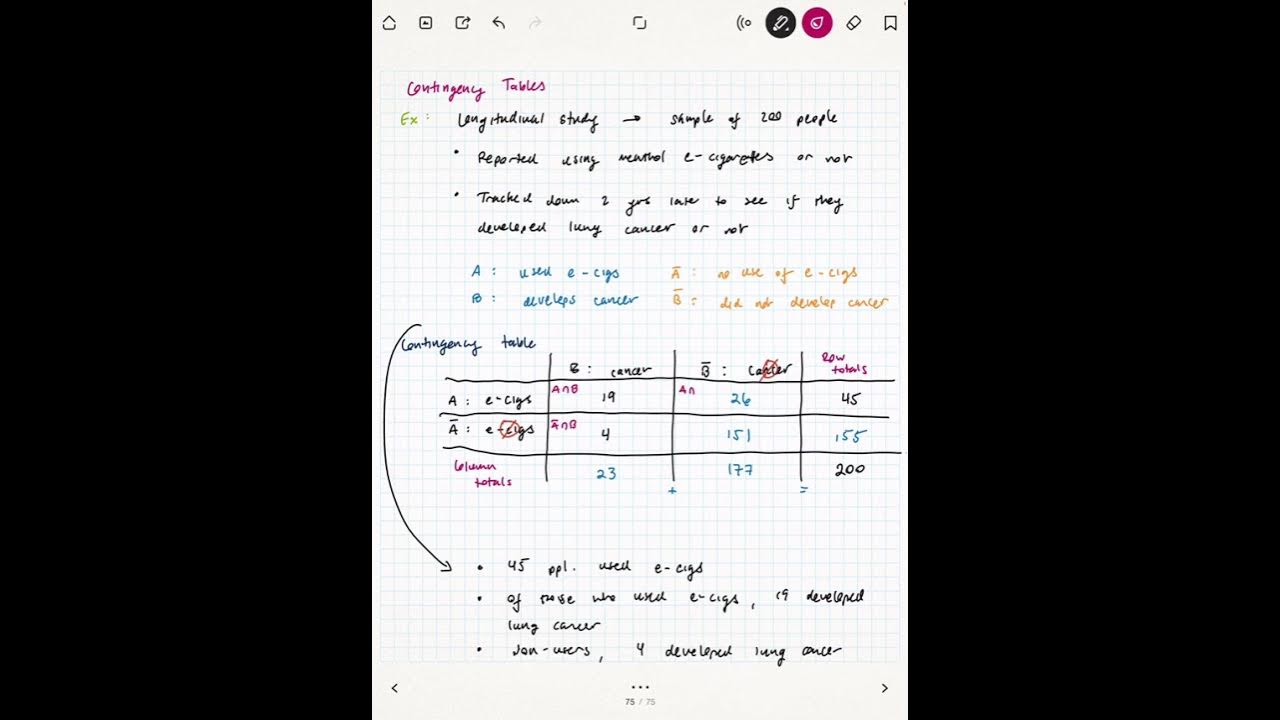 Contingency Tables
Ex: Longitudinal study → sample of 200 people
• Reported using menthol e-cigarettes or not
• Tracked down 2 yrs later to see if they
developed lung cancer or not
A: used e-cigs Ā: no use of e-cigs
B: develops cancer B̄: did not develop cancer
Contingency table
B: cancer B̄: cancer Row totals
A: e-cigs A∩B 19 A∩ 26 45
Ā: e-cigs Ā∩B 4 151 155
Column totals 23 177 200
+ =
• 45 ppl. used e-cigs
• of those who used e-cigs, 19 developed
lung cancer
• Non-users, 4 developed lung cancer
75 / 75